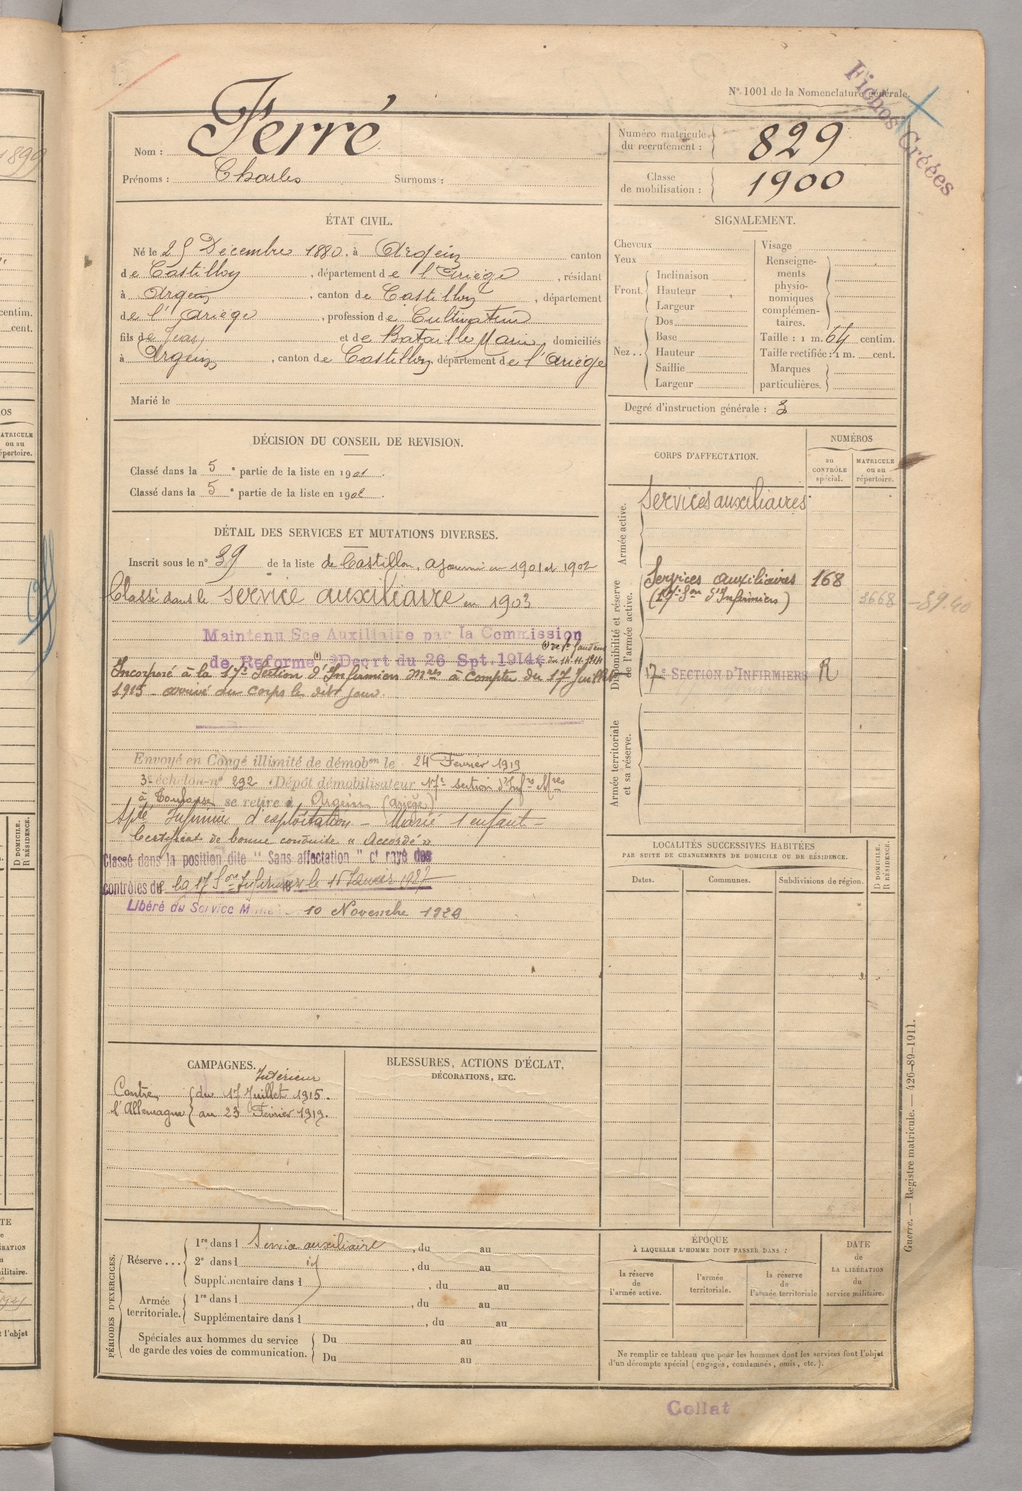 N° 1001 de la Nomenclature générale.
Fiches Créées
Nom : Ferré
Prénoms : Charles Surnoms :
Numéro matricule du recrutement : 829
Classe de mobilisation : 1900
ÉTAT CIVIL.
Né le 25 Décembre 1880, à Argein canton
de Castillon, département de l'Ariège, résidant
à Argein, canton de Castillon, département
de l'Ariège, profession de Cultivateur
fils de Jean et de Bataille Marie domiciliés
à Argein, canton de Castillon, département de l'Ariège
Marié le
SIGNALEMENT.
Cheveux
Yeux
Front
Inclinaison
Hauteur
Largeur
Nez
Dos
Base
Hauteur
Saillie
Largeur
Visage
Renseignements physionomiques complémentaires.
Taille : 1 m. 64 centim.
Taille rectifiée : 1 m. cent.
Marques particulières.
Degré d'instruction générale : 3
DÉCISION DU CONSEIL DE REVISION.
Classé dans la 5e partie de la liste en 1901.
Classé dans la 5e partie de la liste en 1902.
CORPS D'AFFECTATION.
NUMÉROS
au CONTRÔLE spécial.
MATRICULE ou au répertoire.
Armée active.
Services auxiliaires
Disponibilité et réserve de l'armée active.
Services auxiliaires 168
(17e Son d'Infirmiers)
1668
89.40
17e SECTION D'INFIRMIERS R
Armée territoriale et sa réserve.
DÉTAIL DES SERVICES ET MUTATIONS DIVERSES.
Inscrit sous le n° 39 de la liste de Castillon, ajourné en 1901 et 1902
Classé dans le service auxiliaire en 1903
Maintenu Sce Auxiliaire par la Commission
de Réforme (1) Décrt du 26 Spt. 1914
Incorporé à la 17e Section d'Infirmiers Mres à compter du 17 Juillet
1915 arrivé au corps le dit jour.
Envoyé en Congé illimité de démobon le 24 Février 1919
3e échelon n° 292 Dépôt démobilisateur 17e section d'Infrs Mres
à Toulouse se retire à Argein (Ariège)
Apte Infirmier d'exploitation - Marié 1 enfant -
Certificat de bonne conduite "Accordé"
Classé dans la position dite "Sans affectation" et rayé des
contrôles de la 17 Son Infirmiers le 15 Janvier 1927
Libéré du Service M 10 Novembre 1929
LOCALITÉS SUCCESSIVES HABITÉES
PAR SUITE DE CHANGEMENTS DE DOMICILE OU DE RÉSIDENCE.
Dates. Communes. Subdivisions de région.
D DOMICILE. R RÉSIDENCE.
CAMPAGNES.
Intérieur
Contre l'Allemagne
du 17 Juillet 1915.
au 23 Février 1919.
BLESSURES, ACTIONS D'ÉCLAT,
DÉCORATIONS, ETC.
PÉRIODES D'EXERCICES.
Réserve
1re dans l Service auxiliaire, du au
2e dans l id, du au
Supplémentaire dans l, du au
Armée territoriale.
1re dans l, du au
Supplémentaire dans l, du au
Spéciales aux hommes du service de garde des voies de communication.
Du au
Du au
ÉPOQUE
À LAQUELLE L'HOMME DOIT PASSER DANS :
la réserve de l'armée active.
l'armée territoriale.
la réserve de l'armée territoriale
DATE de LA LIBÉRATION du service militaire.
Ne remplir ce tableau que pour les hommes dont les services font l'objet
d'un décompte spécial (engagés, condamnés, omis, etc.).
Guerre. — Registre matricule. — 426-89-1911.
Collat